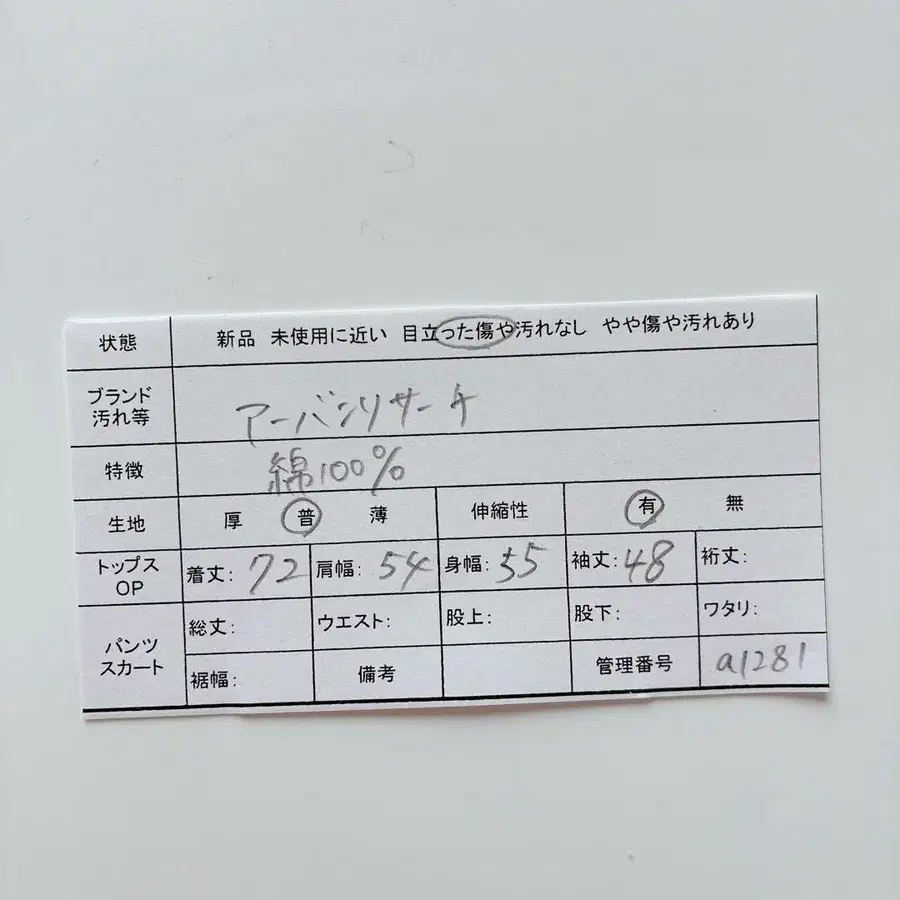 状態 新品 未使用に近い 目立った傷や汚れなし やや傷や汚れあり
ブランド
汚れ等 アーバンリサーチ
特徴 綿100%
生地 厚 普 薄 伸縮性 有 無
トップス
OP 着丈: 72 肩幅: 54 身幅: 55 袖丈: 48 裄丈:
パンツ
スカート 総丈: ウエスト: 股上: 股下: ワタリ:
裾幅: 備考 管理番号 a1281